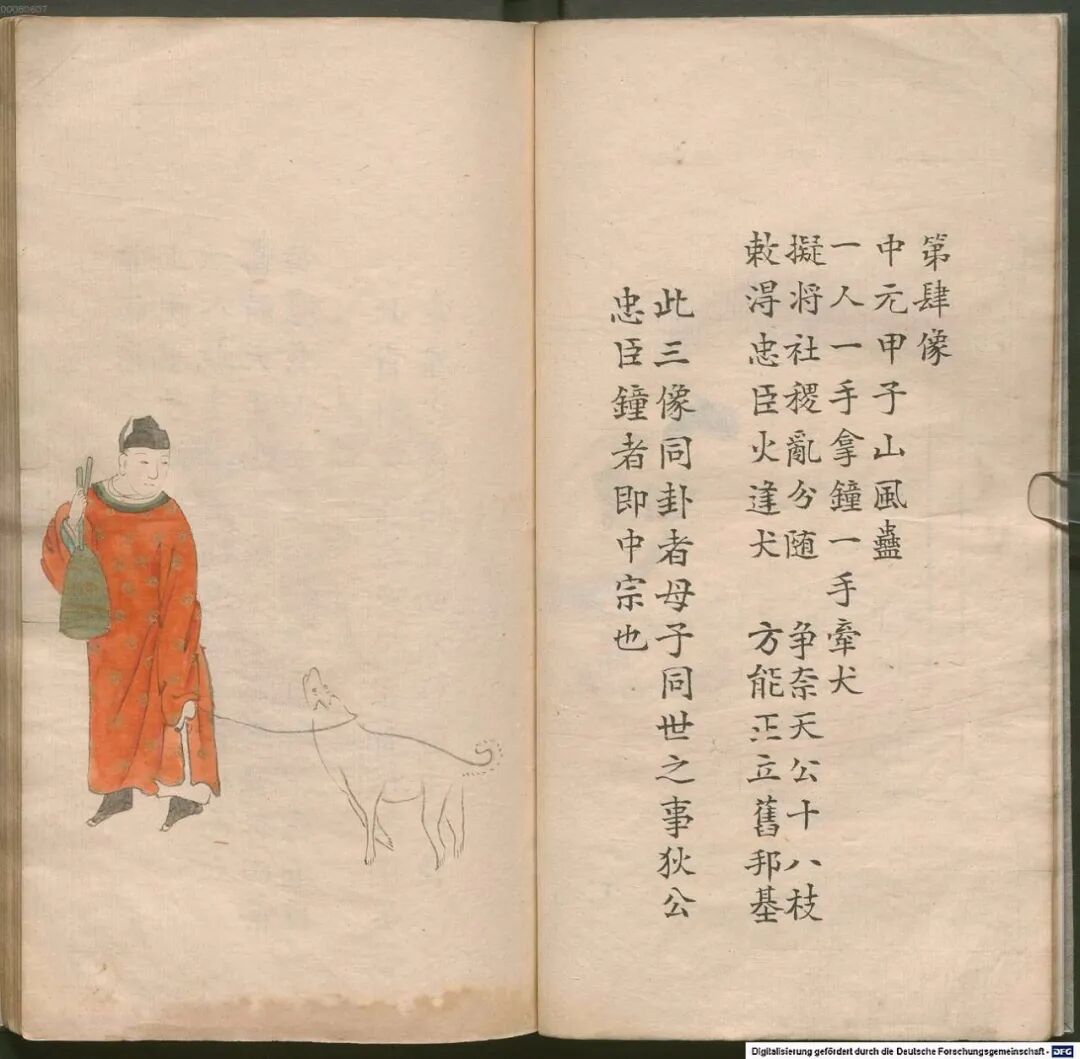 00060607
第肆像
中元甲子山風蠱
一人一手拿鐘一手牽犬
擬将社稷亂分随 争奈天公十八枝
敕淂忠臣火逢犬 方能正立舊邦基
此三像同卦者母子同世之事狄公
忠臣鐘者即中宗也
Digitalisierung gefördert durch die Deutsche Forschungsgemeinschaft - DFG